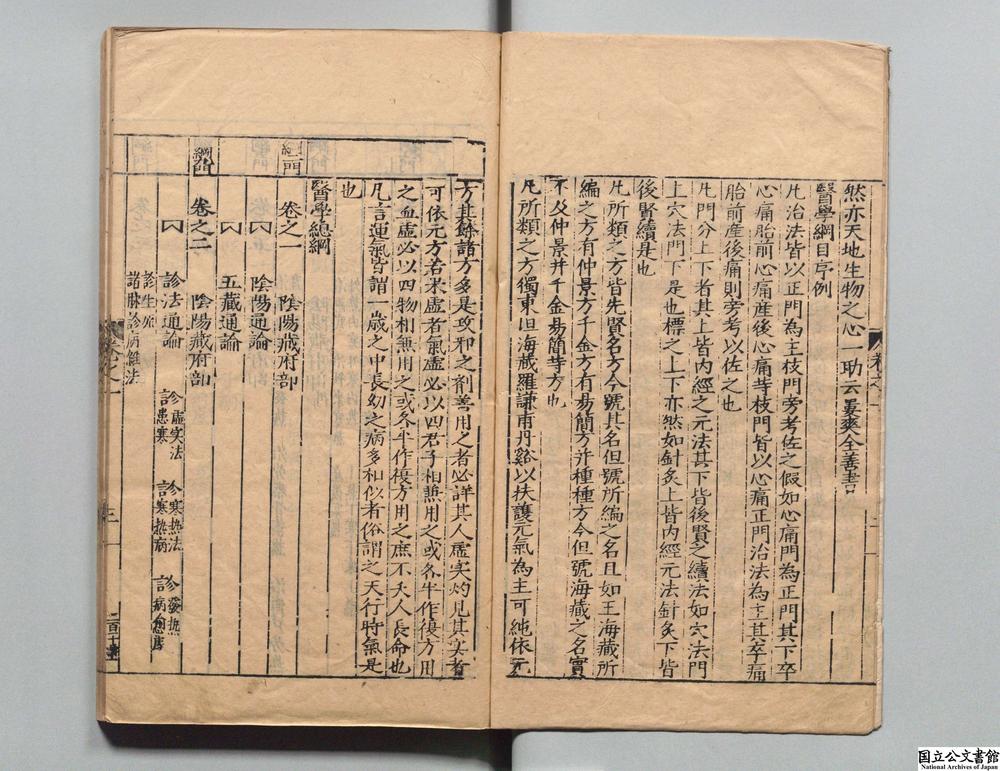 然亦天地生物之心一助云婁爽全善書
醫學綱目序例
凡治法皆以正門為主枝門旁考佐之假如心痛門為正門其下卒
心痛胎前心痛産後心痛等枝門皆以心痛正門治法為主其卒痛
胎前産後痛則旁考以佐之也
凡門分上下者其上皆内經之元法其下皆後賢之續法如穴法門
上穴法門下是也標之上下亦然如針灸上皆内經元法針灸下皆
後賢續是也
凡所類之方皆先賢名方今號其名但號所編之名且如王海藏所
編之方有仲景方千金方有易簡方并種種方今但號海藏之名實
不及仲景并千金易簡等方也
凡所類之方獨東垣海藏羅謙甫丹谿以扶護元氣為主可純依元
方其餘諸方多是攻邪之劑善用之者必詳其人虛实灼見其实者
可依元方若果虛者氣虛必以四君子相兼用之或各半作復方用
之血虛必以四物相兼用之或各半作復方用之庶不夭人長命也
凡言運氣皆謂一歲之中長幼之病多相似者俗謂之天行時氣是
也
醫學總綱
卷之一　陰陽藏府部
陰陽通論
五藏通論
綱門
卷之二　陰陽藏府部
診法通論　診虛实法　診患寒　診寒热法　診寒热病
診生死
諸脉診病雜法
国立公文書館
National Archives of Japan